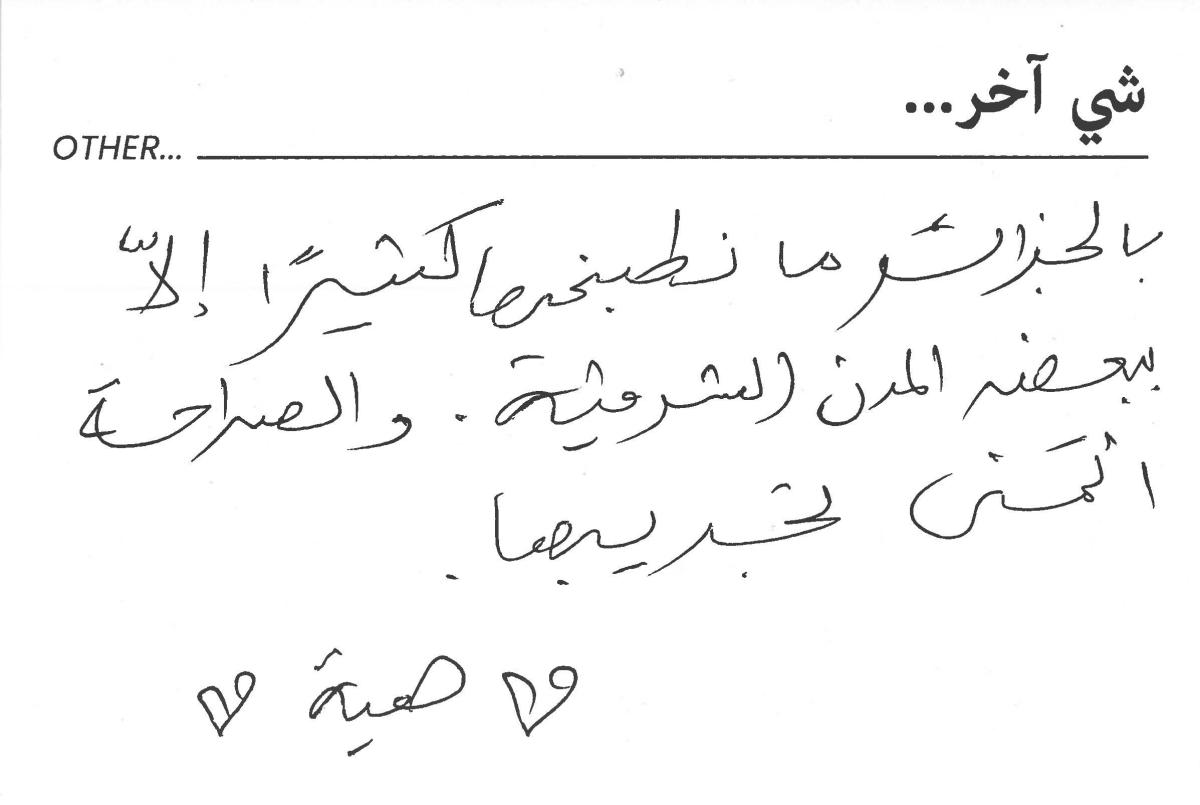 شي آخر...
OTHER...
بالجزائر ما نطبخها كثيرًا إلاّ
ببعض المدن الشرقية. والصراحة
اتمَنى تجريبها.
♡ هبة ♡